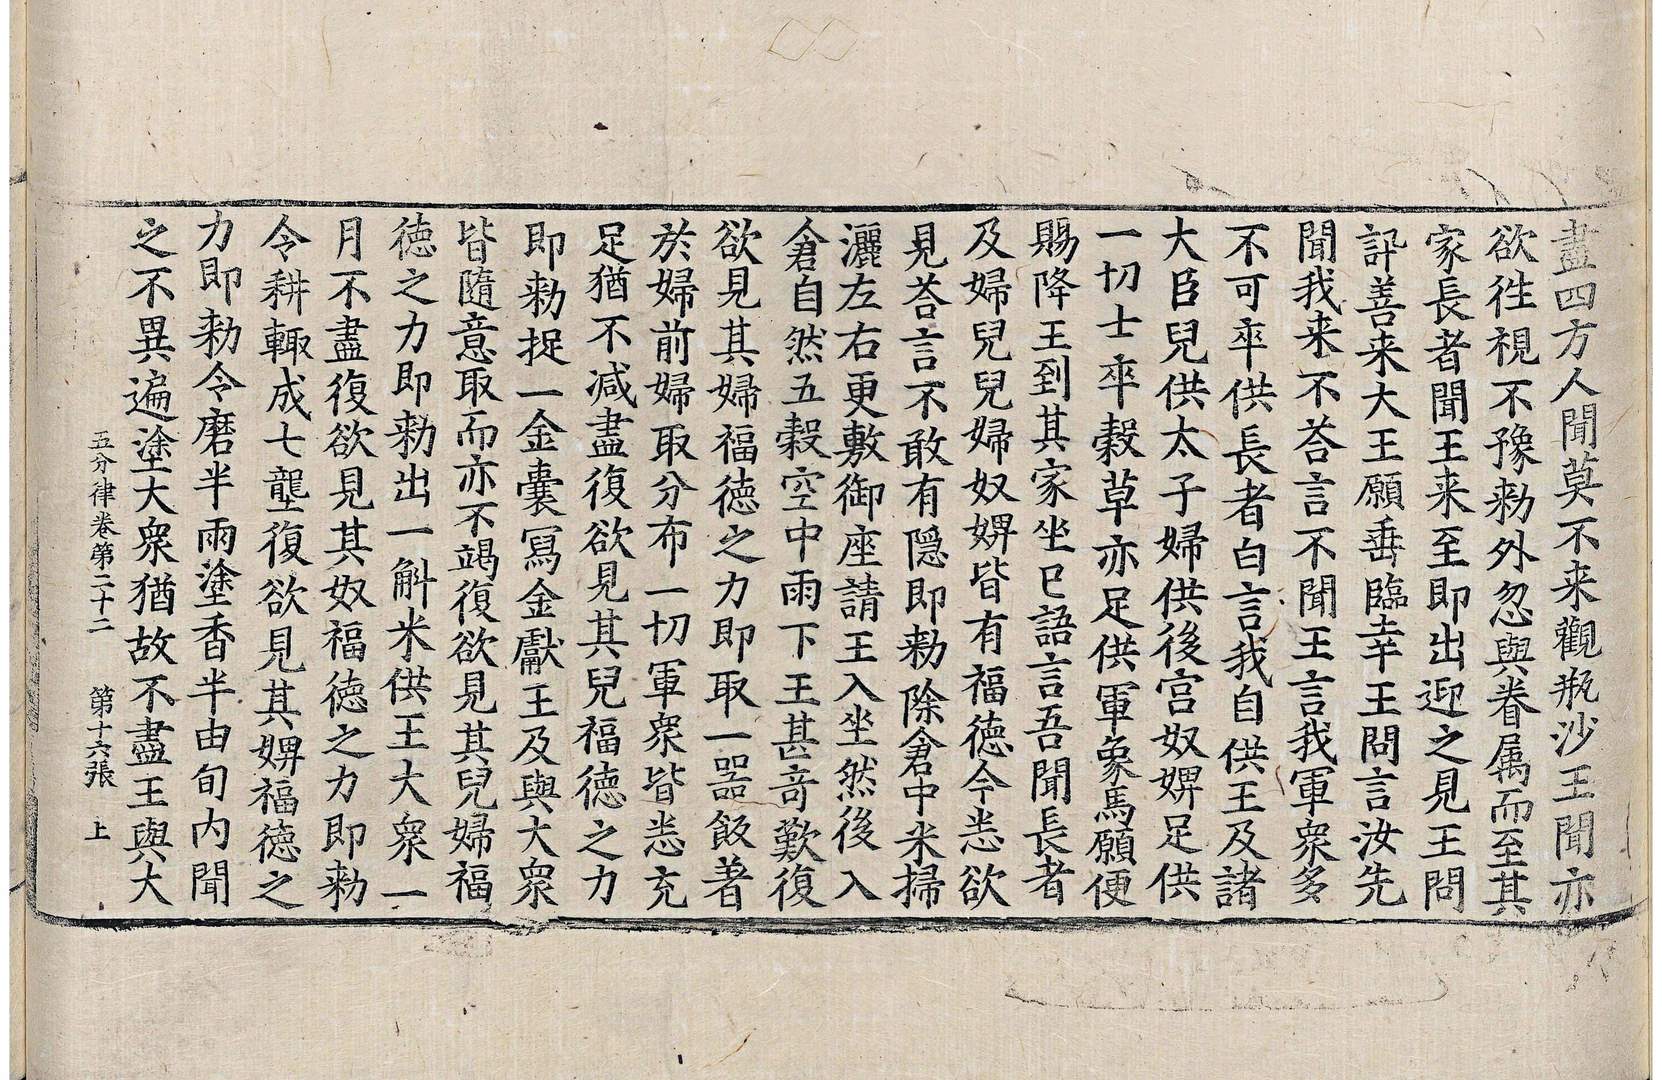 盡四方人聞莫不来觀瓶沙王聞亦
欲往視不豫勑外忽與眷属而至其
家長者聞王来至即出迎之見王問
訊善来大王願垂臨幸王問言汝先
聞我来不荅言不聞王言我軍衆多
不可卒供長者白言我自供王及諸
大臣兒供太子婦供後宫奴婢足供
一切士卒穀草亦足供軍象馬願便
賜降王到其家坐已語言吾聞長者
及婦兒兒婦奴婢皆有福德今悉欲
見荅言不敢有隱即勑除倉中米掃
灑左右更敷御座請王入坐然後入
倉自然五穀空中雨下王甚竒歎復
欲見其婦福德之力即取一器飯著
於婦前婦取分布一切軍衆皆悉充
足猶不減盡復欲見其兒福德之力
即勑捉一金囊冩金獻王及與大衆
皆隨意取而亦不竭復欲見其兒婦福
德之力即勑出一斛米供王大衆一
月不盡復欲見其奴福德之力即勑
令耕輙成七壟復欲見其婢福德之
力即勑令磨半兩塗香半由旬内聞
之不異遍塗大衆猶故不盡王與大
五分律卷第二十二　第十六張　上